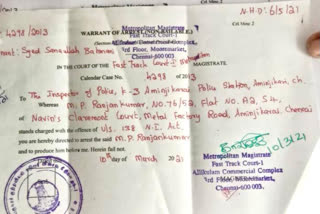 N.H.O. 6/5/21
Crl Misc 2
Metropolitan Magistrate
Fast Track Court-1
3rd Floor, Moore market,
Chennai-600 003.
4298/2013
WARRANT OF ARREST (NON-BAILABLE)
Syed Samiullah Bahman
IN THE COURT OF THE Fast Track Court-I MAGISTRATE
Calendar Case No. 4298 of 2013
To The Inspector of Police, K-3 Aminjikarai Police Station, Aminjikarai, Ch.
Whereas M. P. Ranjankumar, NO. 76/52, Flat NO. A2, S4,
of Navin's Claremont Court, Metal Factory Road, Aminjikarai, Chennai
stands charged with the offence of U/s. 138 N.I. Act
you are hereby directed to arrest the said M. P. Ranjankumar
and to produce him before me. Herein fail not.
10th day of March 2021
10/3/21
Metropolitan Magistrate
Fast Track Court-1
Allikulam Commercial Complex
3rd Floor, Moore market,
Chennai-600 003.